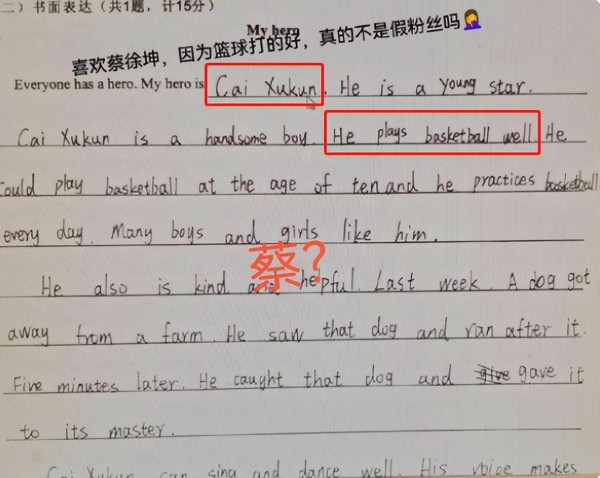 二）书面表达（共1题，计15分）
My hero
喜欢蔡徐坤，因为篮球打的好，真的不是假粉丝吗🤦‍♀️
Everyone has a hero. My hero is Cai Xukun. He is a young star.
Cai Xukun is a handsome boy. He plays basketball well. He
could play basketball at the age of ten and he practices basketball
every day. Many boys and girls like him.
蔡？
He also is kind and helpful. Last week. A dog got
away from a farm. He saw that dog and ran after it.
Five minutes later. He caught that dog and give gave it
to its master.
Cai Xukun can sing and dance well. His voice makes